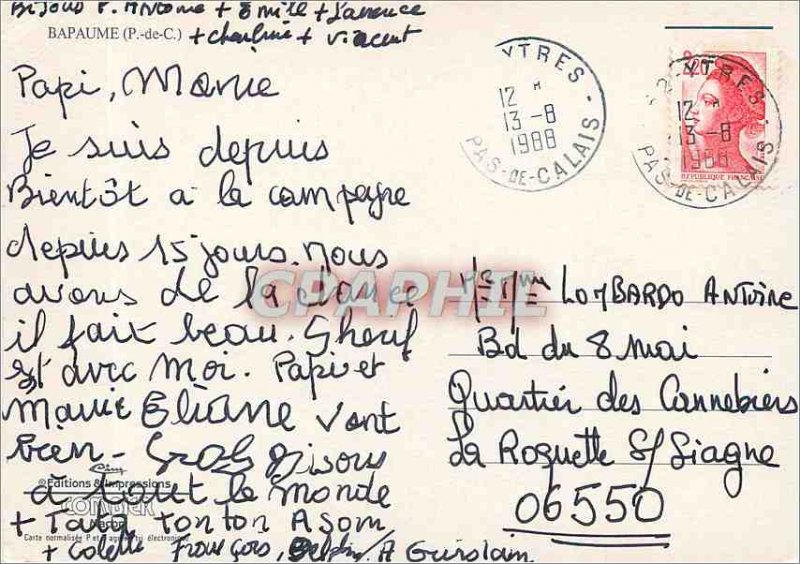 Bijous P. Antoine + Emile + Laurence
BAPAUME (P.-de-C.) + charline + Vincent
Papi, Mamie
Je suis depuis
Bientôt à la campagne
depuis 15 jours. Nous
avons de la chance
il fait beau.
est avec moi. Papi et
Mamie Eliane vont
bien - Gros Bisous
à tout le monde
+ Tata tonton
+ Colette François,
©Editions & Impressions
COMBIER
Macon
Carte normalisée P et
YTRES
12 H
13-8
1988
PAS-DE-CALAIS
2,20
YTRES
12 H
13-8
1988
PAS-DE-CALAIS
REPUBLIQUE FRANÇAISE
CPAPHIL
Mr & Mme LOMBARDO ANTOINE
Bd du 8 mai
Quartier des Cannebiers
La Roquette S/Siagne
06550